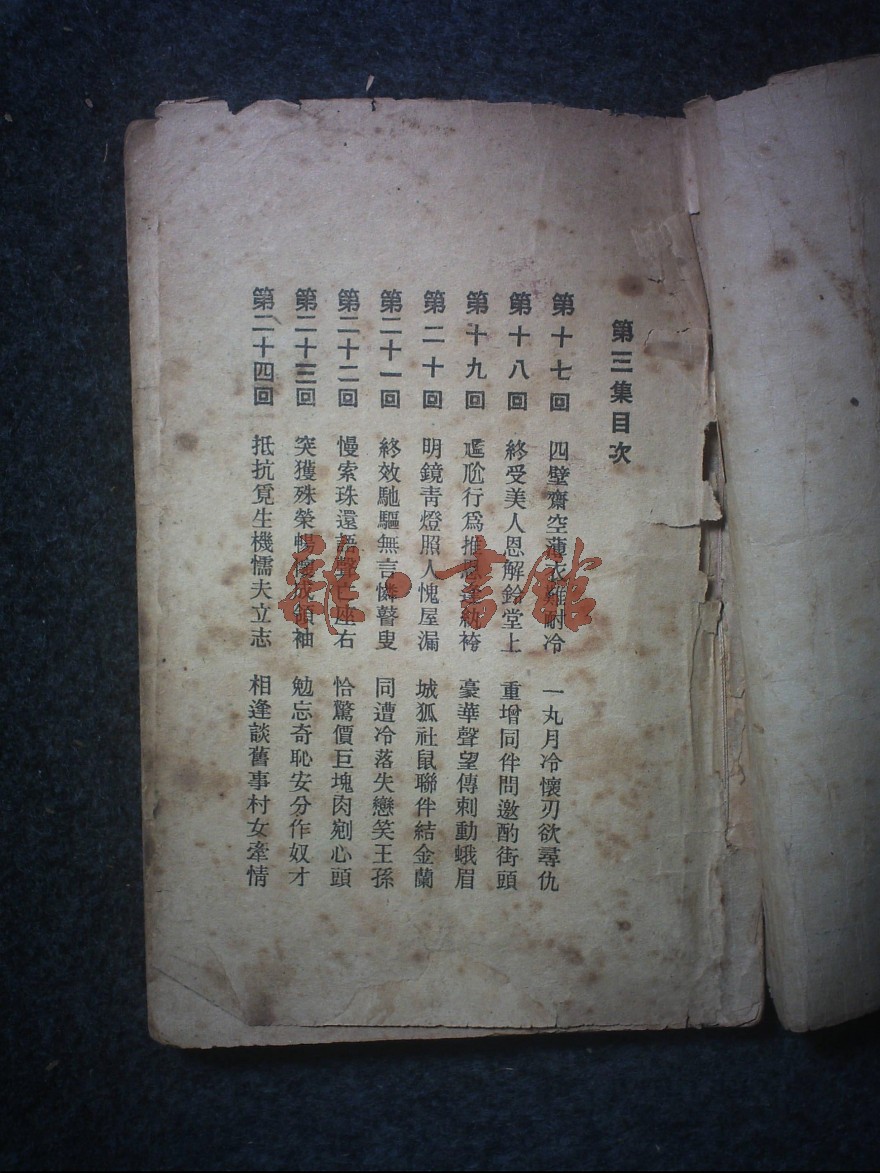 第三集目次
第十七回 四壁齋空薄衣難耐冷 一丸月冷懷刃欲尋仇
第十八回 終受美人恩解鈴堂上 重增同伴問邀酌街頭
第十九回 尷尬行爲推恩逢紈袴 豪華聲望傳刺動蛾眉
第二十回 明鏡靑燈照人愧屋漏 城狐社鼠聯伴結金蘭
第二十一回 終效馳驅無言憐瞽叟 同遭冷落失戀笑王孫
第二十二回 慢索珠還語聲亡座右 恰驚價巨塊肉剜心頭
第二十三回 突獲殊榮暢懷成領袖 勉忘奇恥安分作奴才
第二十四回 抵抗覓生機懦夫立志 相逢談舊事村女牽情
書館